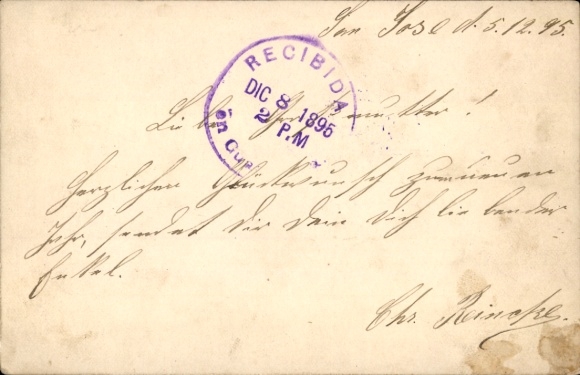 San Jose d. 5.12.95.
RECIBIDA
DIC 8 1895
2 P.M
en Gua
Liebe Großmutter!
Herzlichen Glückwunsch zum neuen
Jahr, sendet Dir Dein Dich liebender
Enkel.
Chr. Reincke.